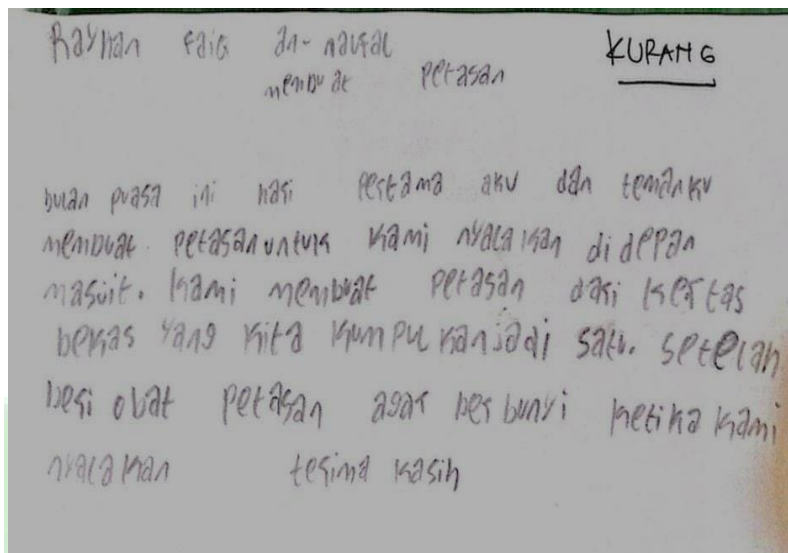 Rayhan faiq an-naufal
KURANG
membuat petasan
bulan puasa ini hari pertama aku dan temanku
membuat petasan untuk kami nyalakan di depan
masjit. kami membuat petasan dari kertas
bekas yang kita kumpulkan jadi satu. setelah
beri obat petasan agar berbunyi ketika kami
nyalakan terima kasih